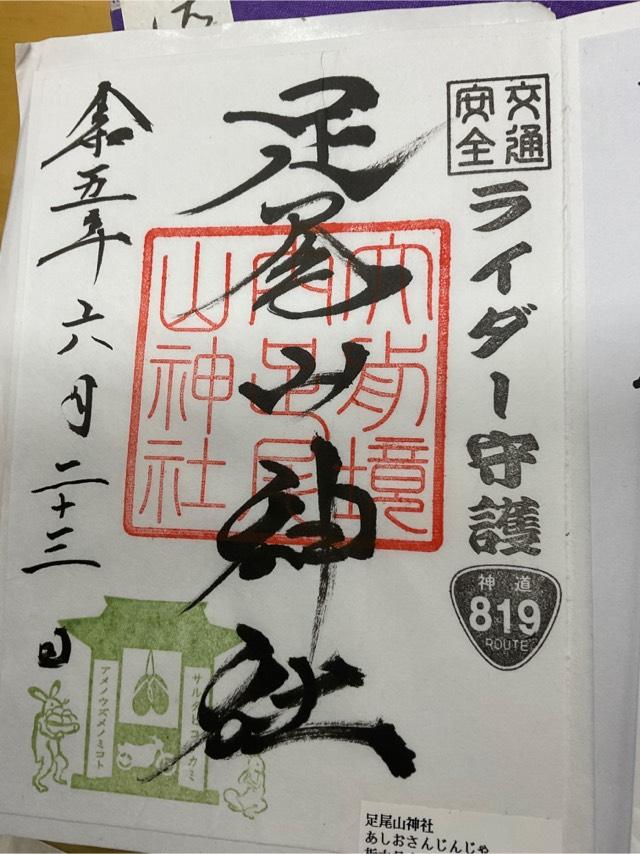 交通
安全
ライダー守護
神道
819
ROUTE
足尾山神社
山神社
令和五年六月二十三日
サルタヒコ
カミ
アメノウズメノミコト
足尾山神社
あしおさんじんじゃ